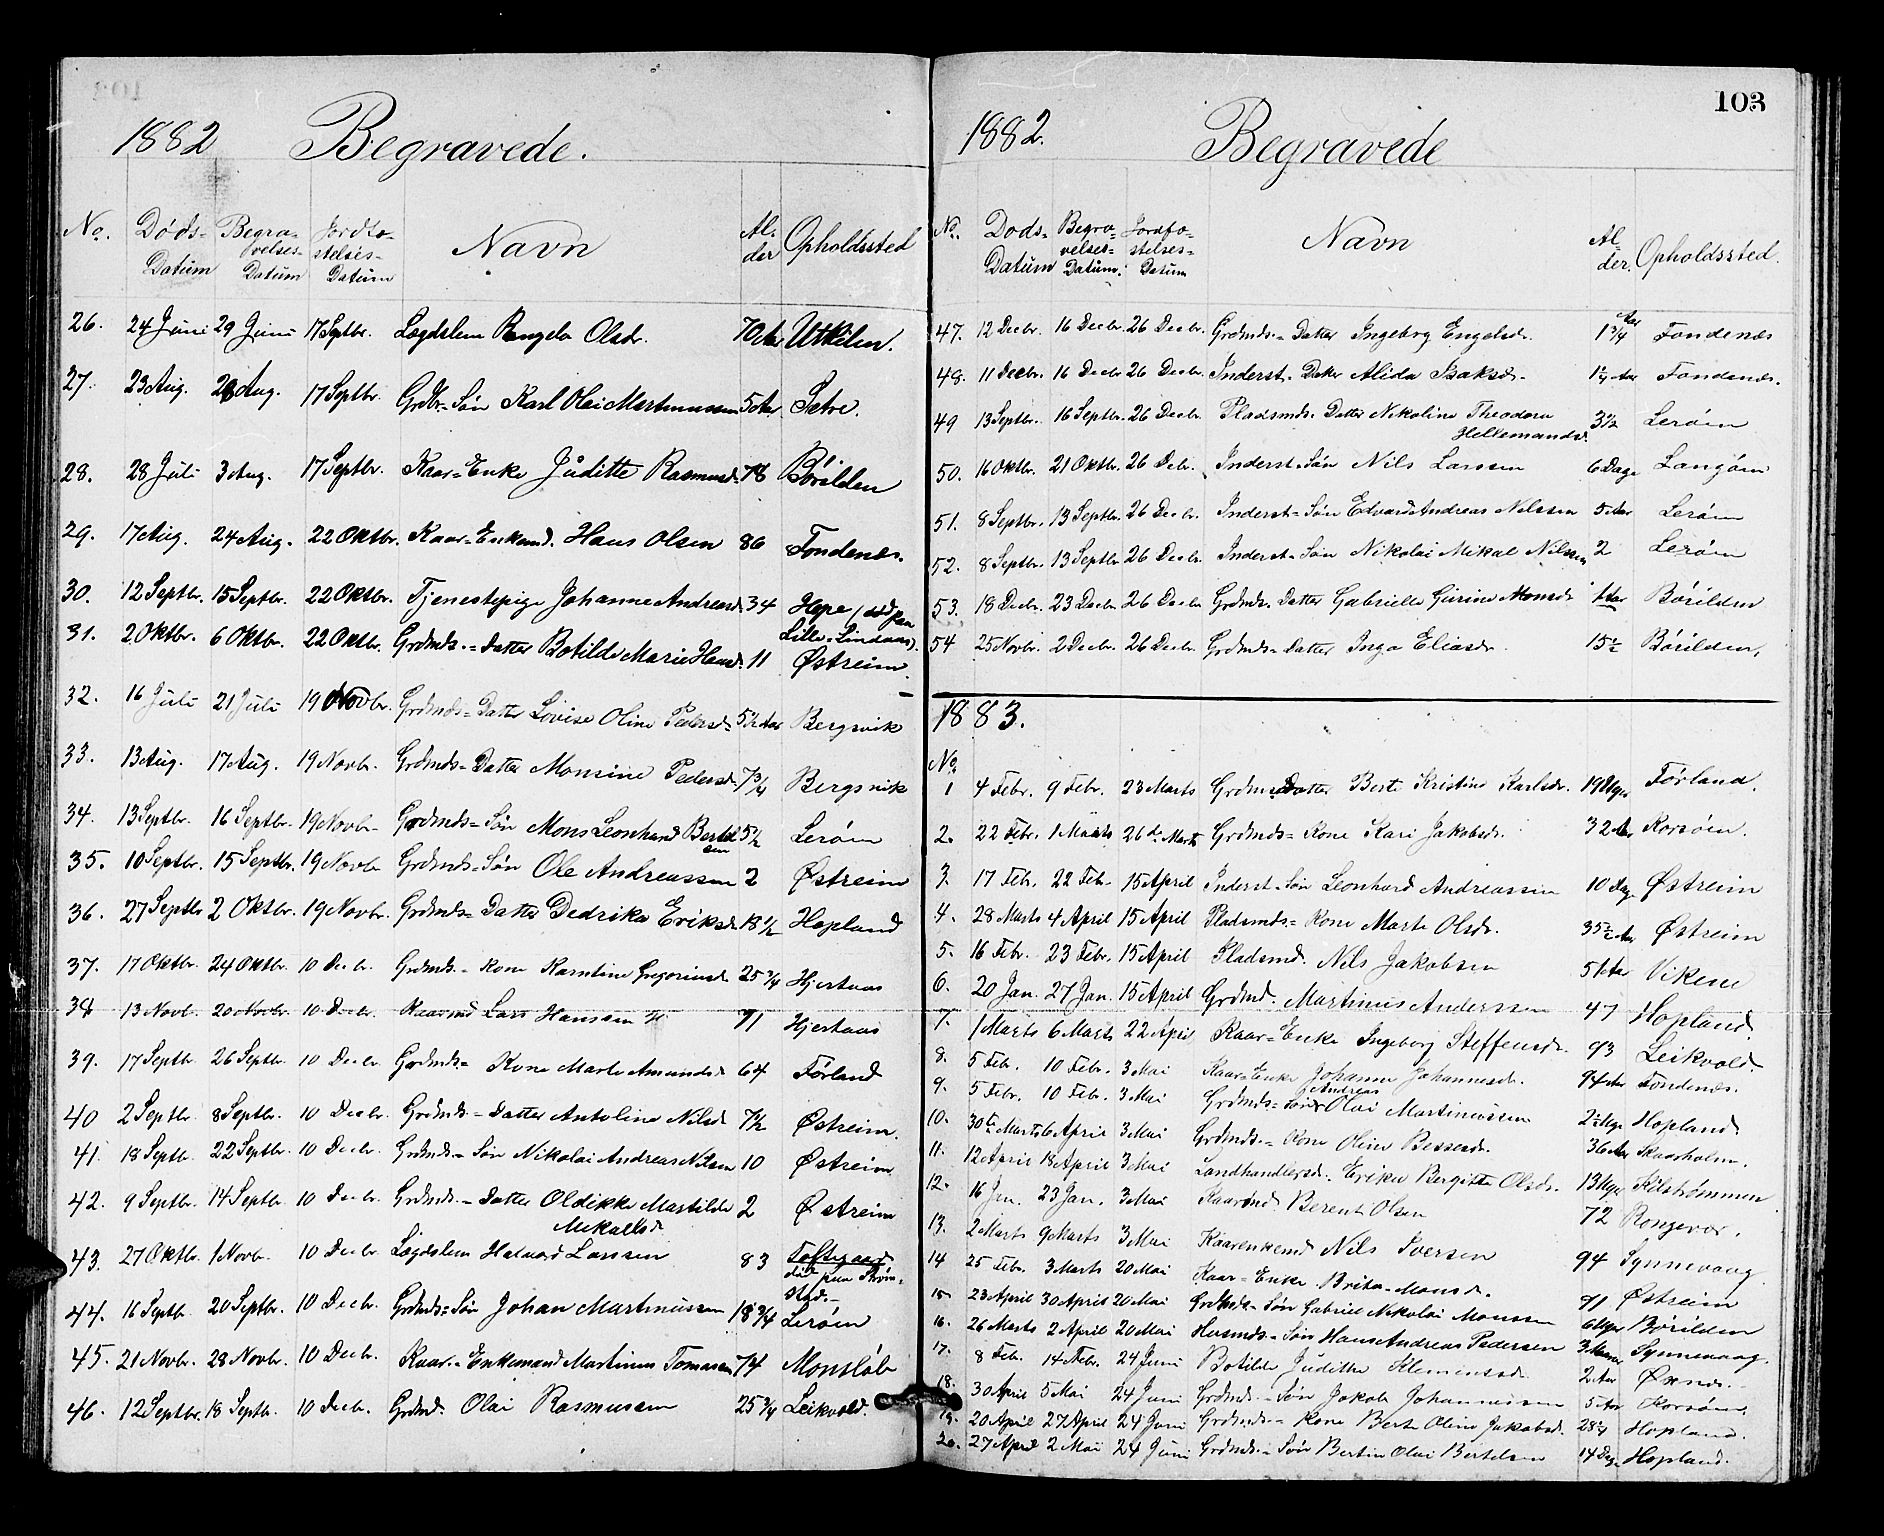 1882 Begravede.
No. Døds-Datum Begravelses-Datum Jordfæstelses-Datum Navn Alder Opholdssted
26. 24 Juni 29 Juni 17 Septbr. Lægdslem Rangela Olsdr. 70 Aar Utkilen.
27. 23 Aug. 26 Aug. 17 Septbr. Grdbr.-Søn Karl Olai Martinussen 5 Aar Sætre.
28. 28 Juli 3 Aug. 17 Septbr. Kaar-Enke Juditte Rasmusd. 78 Börilden
29. 17 Aug. 24 Aug. 22 Oktbr. Kaar-Enkemd. Hans Olsen 86 Fondenæs.
30. 12 Septbr. 15 Septbr. 22 Oktbr. Tjenestepige Johanne Andreasd. 34 Hope (død paa
Lille-Lindaas).
31. 2 Oktbr. 6 Oktbr. 22 Oktbr. Grdmds.-Datter Botilde Marie Hansd. 11 Østreim.
32. 16 Juli 21 Juli 19 Novbr. Grdmds-Datter Lovise Oline Pedersd. 5½ Aar Bergsvik
33. 13 Aug. 17 Aug. 19 Novbr. Grdmds-Datter Monsine Pedersd. 7¾ Bergsvik
34. 13 Septbr. 16 Septbr. 19 Novbr Grdmds-Søn Mons Leonhard Bertelsen 5½ Leröen
35. 10 Septbr. 15 Septbr. 19 Novbr Grdmds-Søn Ole Andreassen 2 Østreim
36. 27 Septbr 2 Oktbr. 19 Novbr. Grdmds-Datter Dedrike Eriksd. 18½ Hopland
37. 17 Oktbr. 24 Oktbr. 10 Decbr. Grdmds.-Kone Gregoriusd. 25¾ Hjertaas
38 13 Novbr. 20 Novbr. 10 Decbr. Kaarmd Lars Hanssen 71 Hjertaas
39. 17 Septbr 26 Septbr. 10 Decbr. Grdmds-Kone Marte Amundsd 64 Førland
40 2 Septbr. 8 Septbr. 10 Decbr. Grdmds-Datter Antoline Nilsd 7½ Østreim.
41. 18 Septbr. 22 Septbr. 10 Decbr. Grdmds.-Søn Nikolai Andreas Nilsen 10 Østreim
42. 9 Septbr. 14 Septbr. 10 Decbr. Grdmds.-Datter Oldikke Martilde 2 Østreim
Mikalsd.
43. 27 Oktbr. 1 Novbr. 10 Decbr. Lægdslem Halvard Larssen 83 Toftegaard
død paa Strömstad.-
44. 16 Septbr 20 Septbr. 10 Decbr. Grdmds-Søn Johan Martinussen 18¾ Leröen
45. 21 Novbr. 28 Novbr. 10 Decbr. Kaar.-Enkemand Martinus Tomassen 74 Monsløb
46. 12 Septbr. 18 Septbr. 10 Decbr. Grdmd. Olai Rasmussen 25¾ Leikvold.
103
1882. Begravede
No. Døds-Datum Begravelses-Datum. Jordfæstelses-Datum Navn Alder. Opholdssted.
47. 12 Decbr. 16 Decbr. 26 Decbr. Grdmds.-Datter Ingeborg Engelsdr. 1¾ Aar Fondenæs
48. 11 Decbr. 16 Decbr 26 Decbr. Inderst-Datter Alida Isaksdr. Aar Fondenæs.
49 13 Septbr. 16 Septbr. 26 Decbr. Pladsmds. Datter Nikoline Theodora 3½ Leröen
Hellemandsd.
50. 16 Oktbr. 21 Oktbr. 26 Decbr. Inderst-Søn Nils Larssen 6 Dage Langöen
51. 8 Septbr. 13 Septbr. 26 Decbr. Inderst-Søn Edvard Andreas Nilssen 5 Aar Leröen
52. 8 Septbr. 13 Septbr 26 Decbr. Inderst-Søn Nikolai Mikal Nilssen 2 Leröen
53. 18 Decbr. 23 Decbr. 26 Decbr Grdmds. Datter Gabrielle Gurine Monsd. 1 Aar Börilden
54 25 Novbr. 2 Decbr. 26 Decbr Grdmds-Datter Inga Eliasdr. 15½ Börilden,
1883.
No.
1 4 Febr. 9 Febr. 23 Marts Grdmds Datter Berte Kristine Karlsdr. 19 Uger Førland.
2. 22 Febr. 1 Marts 26de Marts Grdmds-Kone Kari Jakobsdr. 32 Aar Korsöen.
3. 17 Febr. 22 Febr. 15 April Inderst-Søn Leonhard Andreassen 10 Dage Østreim
4. 28 Marts 4 April 15 April Pladsmds-Kone Marte Olsdr. 35½ Aar Østreim
5. 16 Febr. 23 Febr. 15 April Pladsmd. Nils Jakobsen 51 Aar Vikene
6. 20 Jan. 27 Jan. 15 April Grdmd. Martinus Anderssen 47 Hopland.
7. 1 Marts 6 Marts 22 April Kaar-Enke Ingeborg Steffensdr. 93 Leikvold.
8. 5 Febr. 10 Febr. 3 Mai Kaar-Enke Johanne Johannesdr. 94 Aar Fondenæs.
9. 5 Febr. 10 Febr. 3 Mai Grdmds-Søn Andreas Olai Martinussen 2½ Uge Hopland.
10. 30te Marts 6 April 3 Mai Grdmds.-Kone Oline Bessesdr. 36 Aar Skaarholm.
11. 12 April 18 April 3 Mai Landhandlersd. Erika Bergitte Olsdr. 13 Uger Kilstrømmen
12. 16 Jan. 23 Jan. 3 Mai Kaarmd Berent Olsen 72 Rongevær.
13. 2 Marts 9 Marts 3 Mai Kaarenkemd Nils Iversen 94 Synnevaag
14 25 Febr. 3 Marts 20 Mai Kaar-Enke Brita Monsdr. 91 Østreim
15. 23 April 30 April 20 Mai Grdmds-Søn Gabriel Nikolai Monssen 6 Uger Börilden
16. 26 Marts 2 April 20 Mai Husmds-Søn Hans Andreas Pedersen 3 Synnevaag.
17. 8 Febr. 14 Febr. 24 Juni Botilde Juditha Klemensd. 2 Aar Øxnæs.
18. 30 April 5 Mai 24 Juni Grdmds-Søn Jakob Johannessen 5 Aar Korsöen.
19. 20 April 27 April 24 Juni Grdmds-Kone Berte Oline Jakobsd. Hopland.
20. 27 April 2 Mai 24 Juni Grdmds-Søn Bertin Olai Bertelsen 14 Dage Hopland.